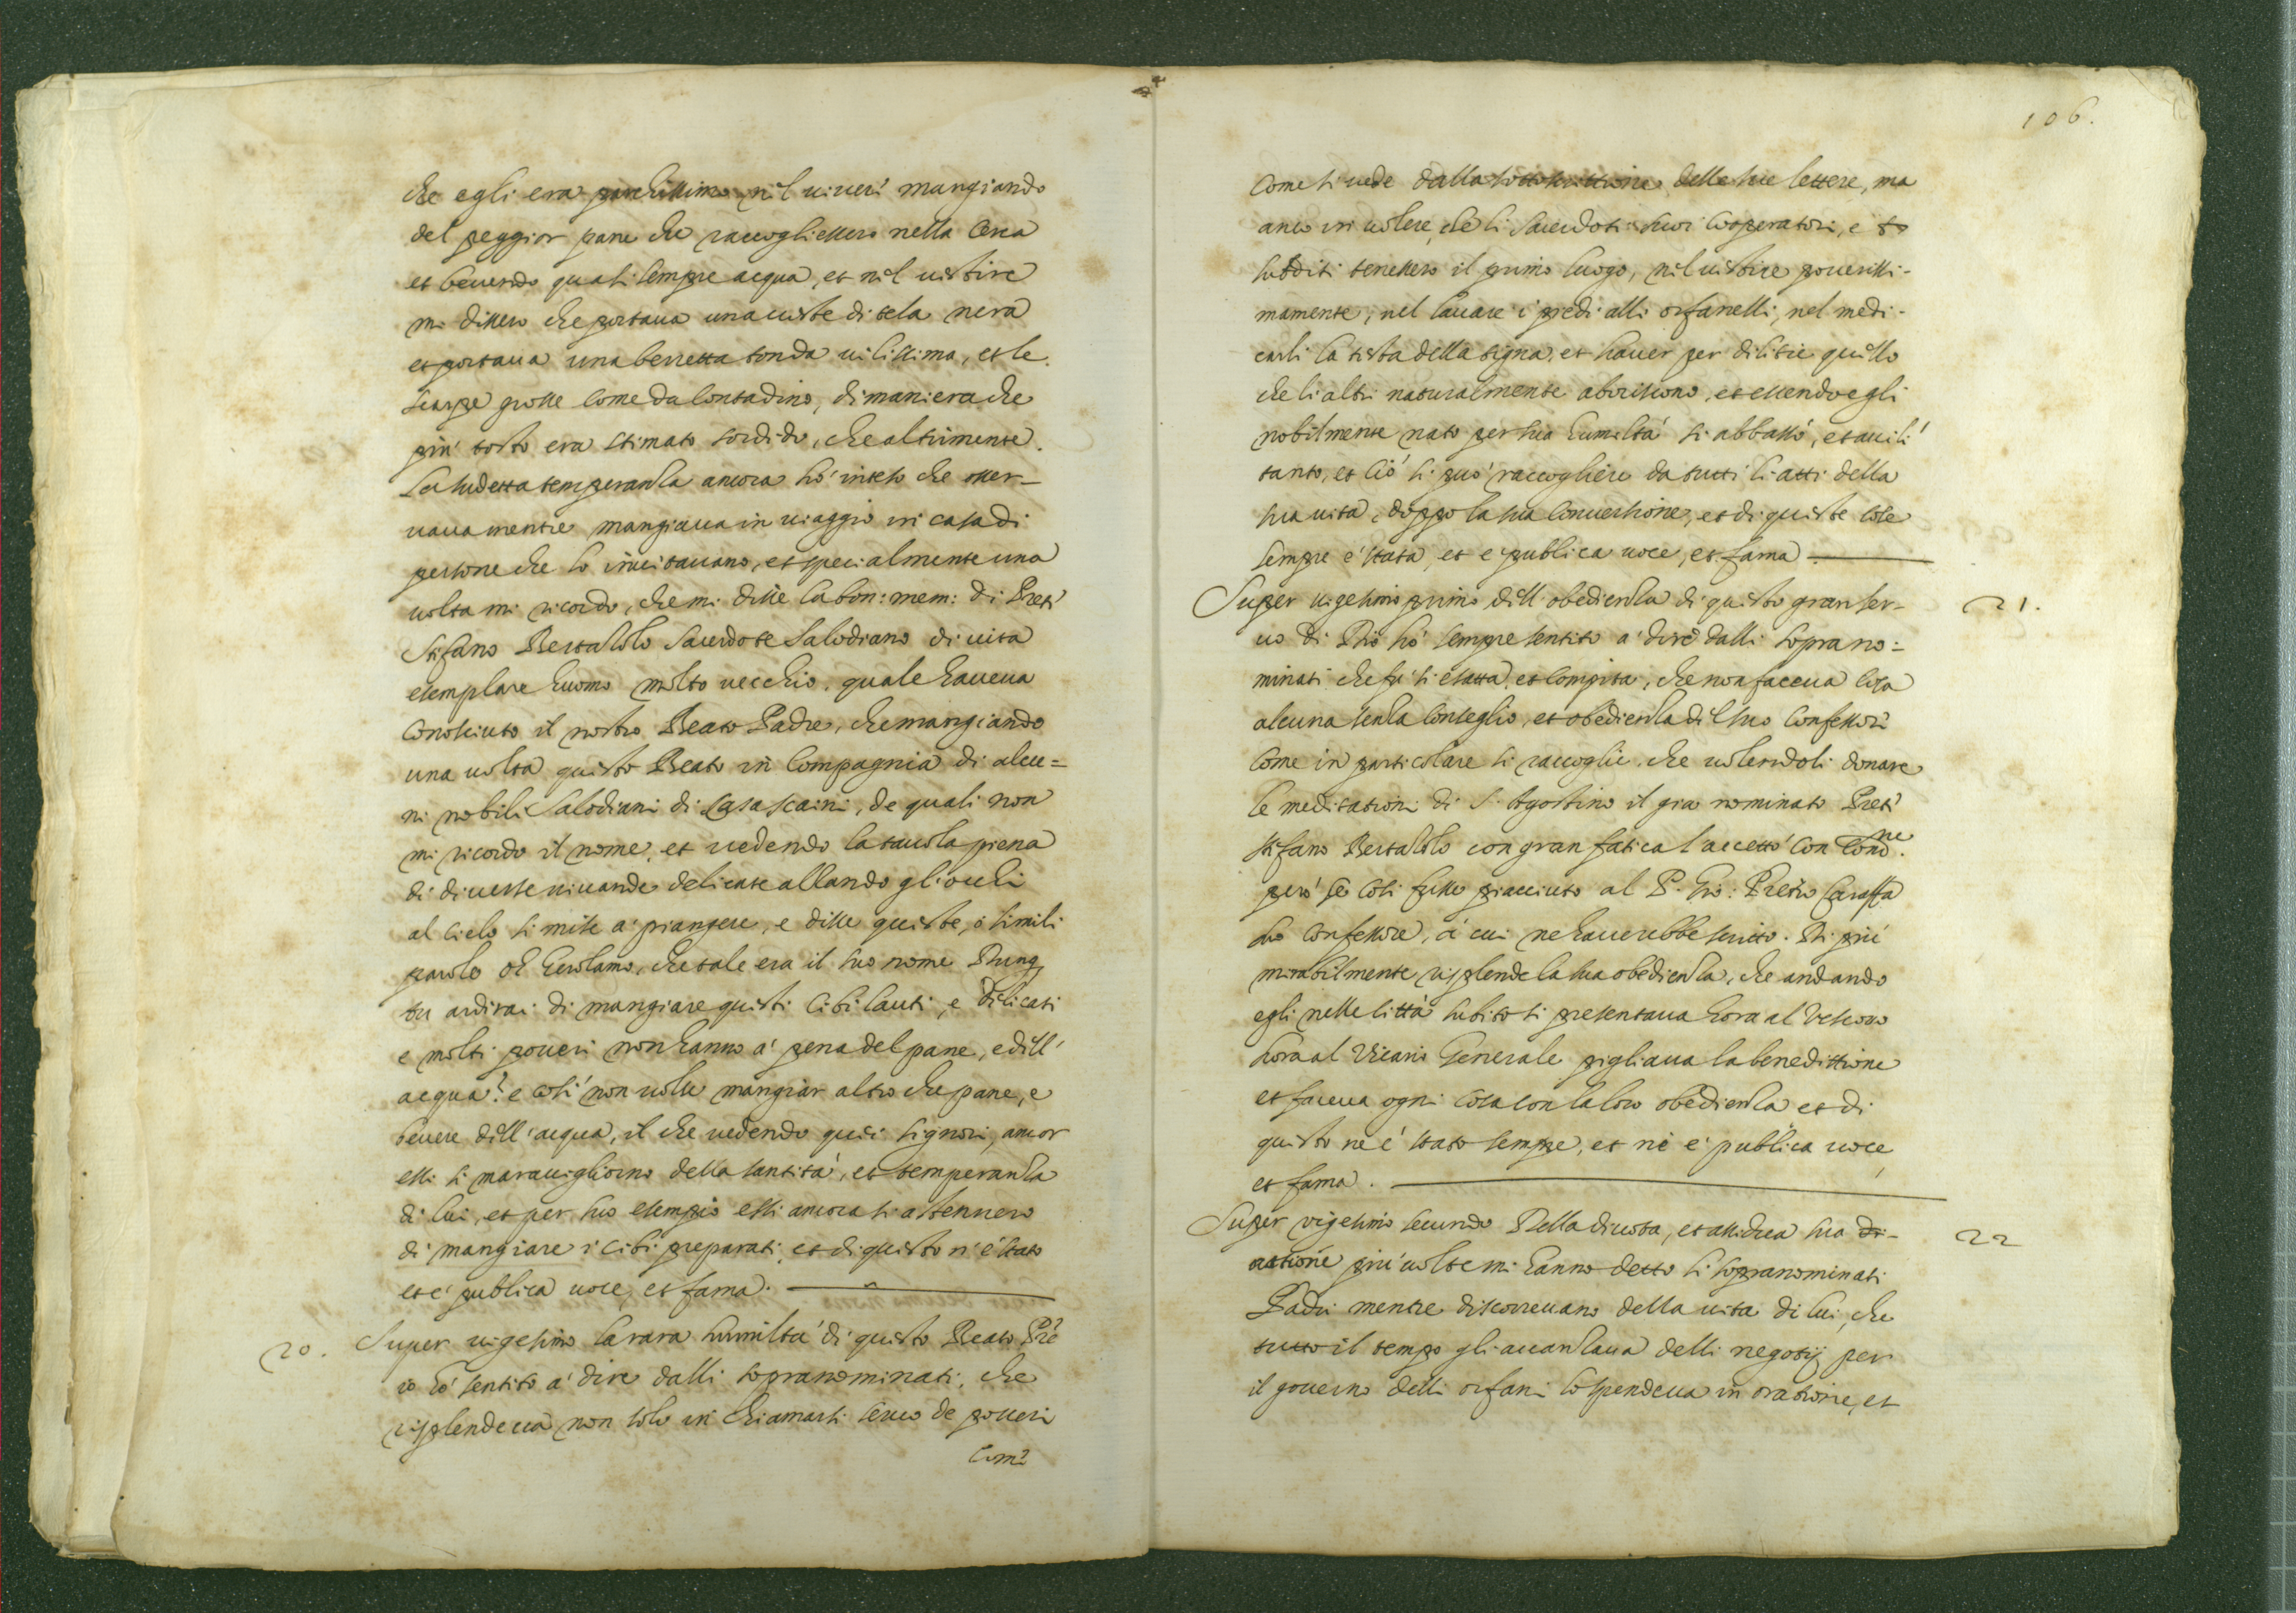 che egli era parchissimo nel viver mangiando
del peggior pane che raccogliessero nella Cerca
et bevendo quasi sempre acqua, et nel vestire
mi dissero che portava una veste di tela nera
et portava una berretta tonda vilissima, et le
scarpe grosse come da Contadino, di maniera che
più tosto era stimato sordido, che altrimente.
La sudetta temperanza ancora hò inteso che osser-
vava mentre mangiava in viaggio in casa di
persone che lo invitavano, et specialmente una
volta mi ricordo, che mi disse la bon: mem: di Prete
Stefano Bertazolo Sacerdote Salodiano di vita
esemplare huomo molto vecchio, quale haveva
conosciuto il nostro Beato Padre, che mangiando
una volta questo Beato in Compagnia di alcu=
ni nobili Salodiani di Casa scaini, de quali non
mi ricordo il nome, et vedendo la tavola piena
di diverse vivande delicate alzando gli occhi
al Cielo si mise à piangere, e disse queste, ò simili
parole oh Gerolamo, che tale era il suo nome Dunq
tu ardirai di mangiare questi Cibi lauti, e delicati
e molti poveri non hanno à pena del pane, e dell'
acqua? e così non volse mangiar altro che pane, e
bevere dell'acqua, il che vedendo quei signori, ancor
essi si maravigliorno della santità, et temperanza
di lui, et per suo esempio essi ancora si astennero
di mangiare i Cibi preparati, et di questo n'è stato
et è publica voce, et fama.
20. Super vigesimo la rara humiltà di questo Beato Pre
io hò sentito à dire dalli sopranominati, che
risplendeva non solo in chiamarsi servo de poveri
Come
106.
Come si vede dalla sottoscrittione delle sue lettere, ma
anco in volere, che li Sacerdoti suoi Cooperatori, e
sudditi tenessero il primo luogo, nel vestire poverissi-
mamente, nel lavare i piedi alli orfanelli, nel medi-
carli la testa della tigna, et haver per delitie quello
che li altri naturalmente aboriscono, et essendo egli
nobilmente nato per sua humiltà si abbassò, et avilì
tanto, et Ciò si può raccogliere da tutti li atti della
sua vita, doppo la sua Conversione, et di queste Cose
sempre è stata, et è publica voce, et fama.
Super vigesimo primo dell'obedienza di questo gran ser- 21.
vo di Dio hò sempre sentito à dire dalli soprano=
minati che fu si esatta, et Compita, che non faceva Cosa
alcuna senza Conseglio, et obedienza del suo Confessore
Come in particolare si raccoglie, che volendoli donare
le meditationi di S. Agostino il già nominato Prete
Stefano Bertazolo con gran fatica l'accettò con Cond.ne
però se Così fusse piacciuto al P. Gio: Pietro Caraffa
suo Confessore, à cui ne haverebbe scritto. Di più
mirabilmente risplende la sua obedienza, che andando
egli nelle Città subito si presentava hora al Vescovo
hora al Vicario Generale pigliava la benedittione
et faceva ogni Cosa con la loro obedienza et di
questo ne è stato sempre, et ne è publica voce
et fama.
Super vigesimo secundo Della divota, et assidua sua 22
oratione più volte mi hanno detto li sopranominati
Padri mentre discorrevano della vita di lui, che
tutto il tempo gli avanzava delli negotij per
il governo delli orfani lo spendeva in oratione, et